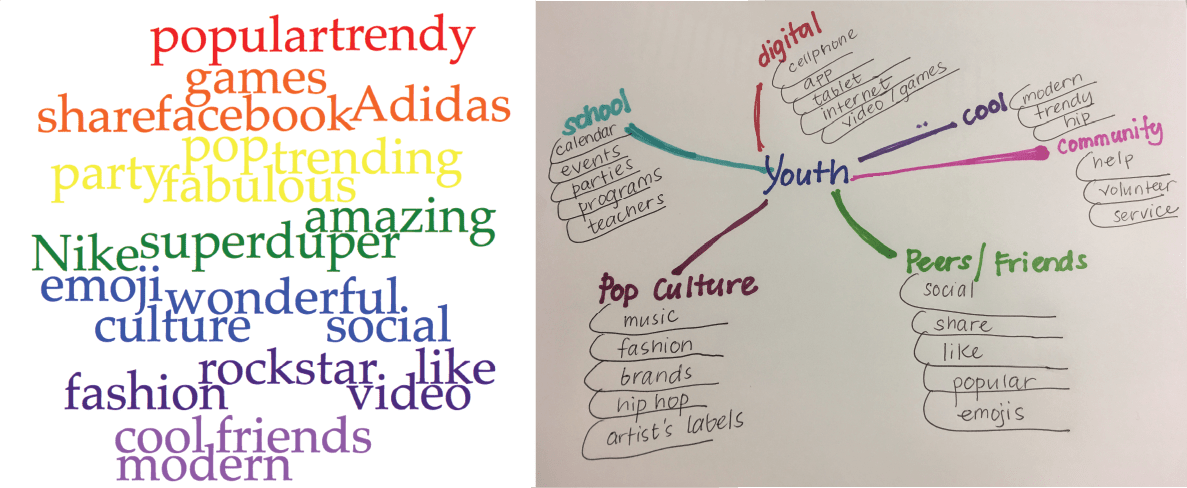 populartrendy
games
sharefacebookAdidas
pop
partyfabuloustrending
amazing
Nikesuperduper
emojiwonderful
culture social
rockstar like
fashion video
cool friends
modern
digital
cellphone
app
tablet
internet
video/games
school
calendar
events
parties
programs
teachers
cool
modern
trendy
hip
community
help
volunteer
service
Youth
Pop Culture
music
fashion
brands
hip hop
artist's labels
Peers/Friends
social
share
like
popular
emojis